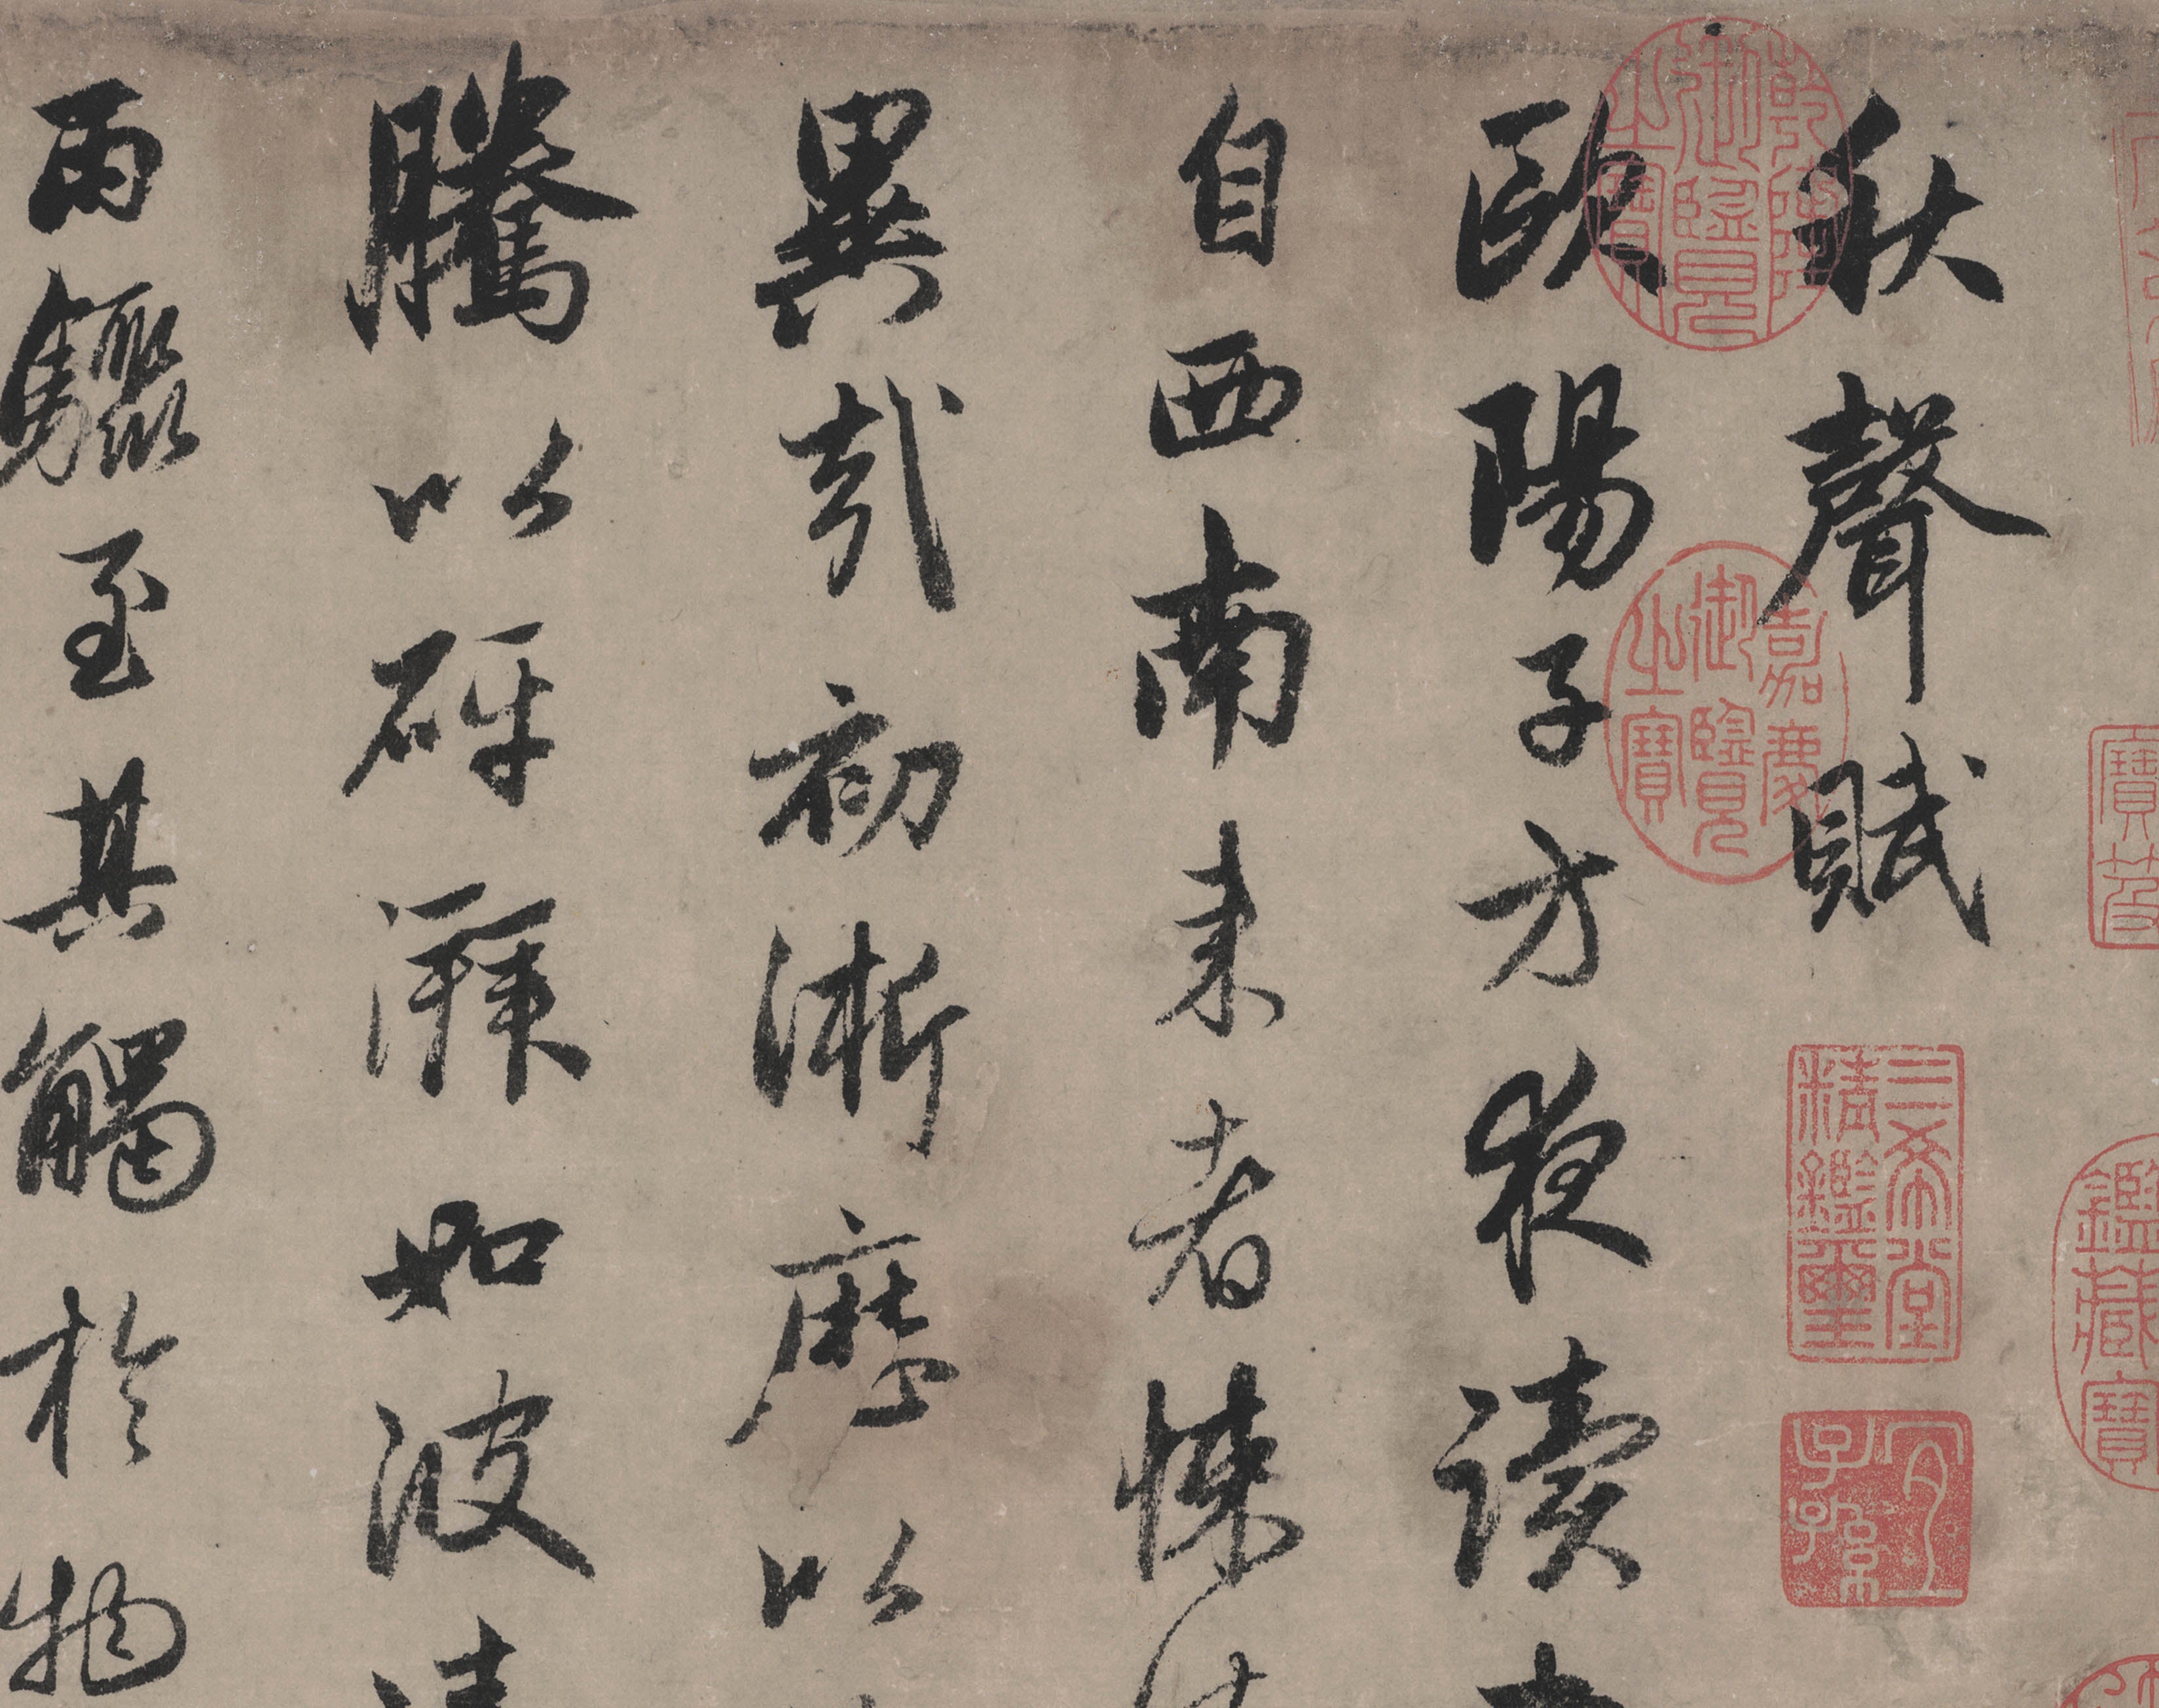 秋聲賦
歐陽子方夜讀書
自西南来者悚
異哉初淅歷以
騰以砰湃如波
雨驟至其觸於物
乾隆御覽之寶
嘉慶御覽之寶
三希堂精鑑璽
宜子孫
鑑藏寶
寶笈